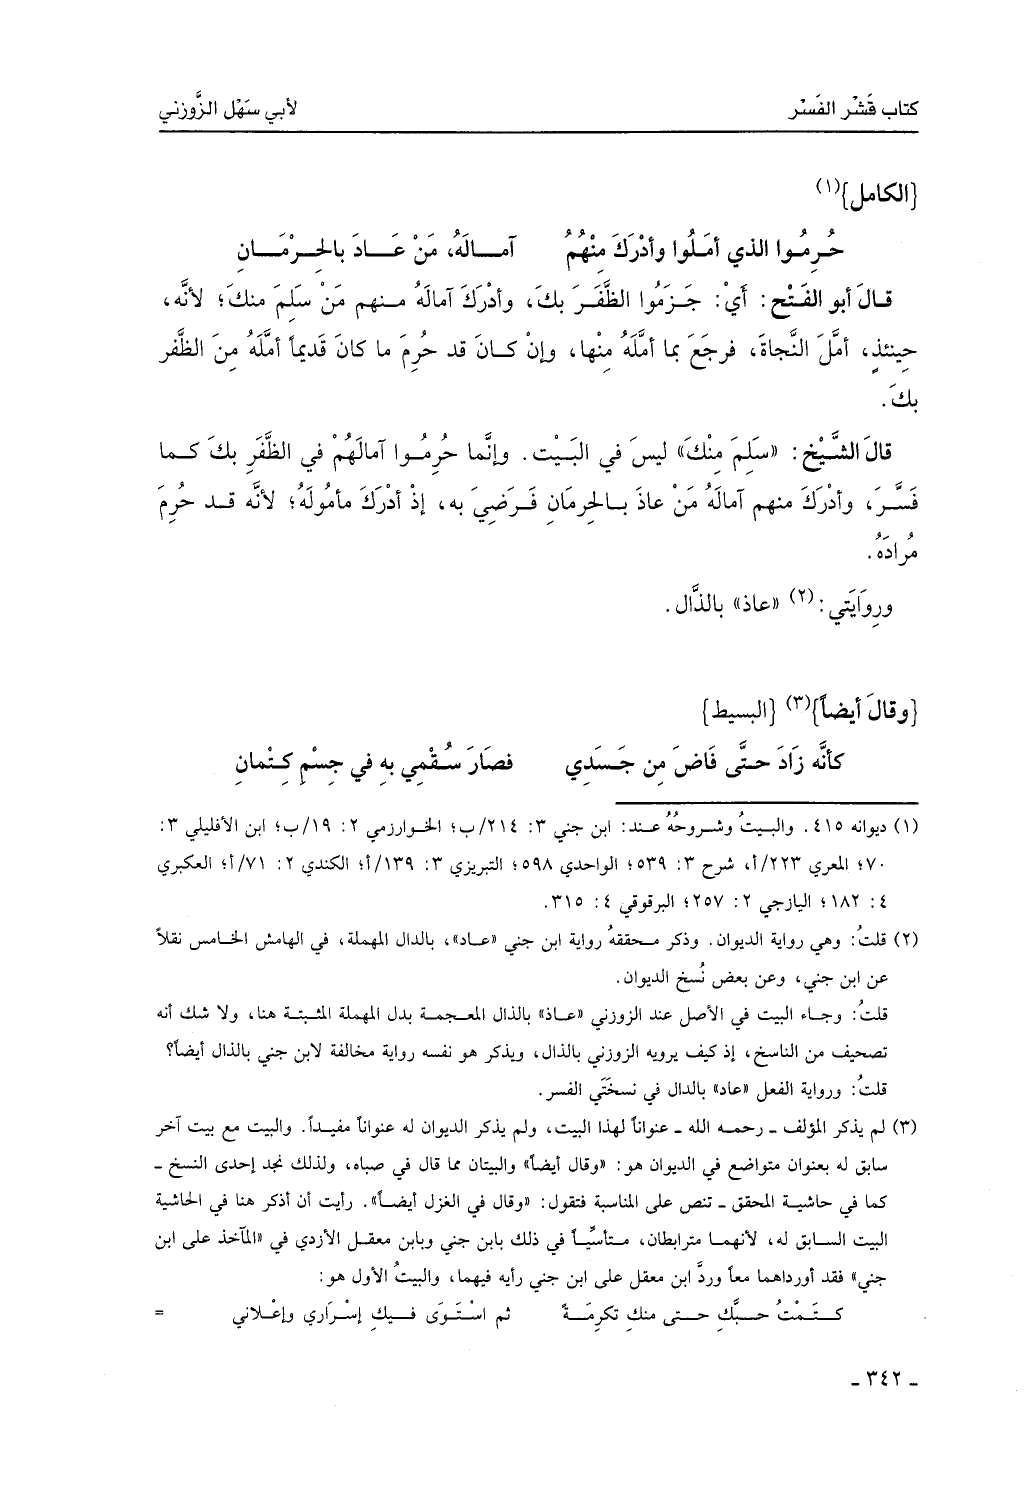 كتاب قَشْر الفَسْر لأبي سَهْل الزَّوزني
{الكامل}(١)
حُرِمُوا الذي أمَلُوا وأدْرَكَ مِنْهُمُ آمــالَهُ، مَنْ عَــادَ بالحِـرْمَــانِ
قـالَ أبو الفَتْح: أَيْ: حَـرَمُوا الظَّفَـرَ بكَ، وأدْرَكَ آمالَهُ مـنهم مَنْ سَلِمَ منكَ؛ لأنَّه،
حِينئذٍ، أمَّلَ النَّجاةَ، فرجَعَ بما أمَّلَهُ مِنْها، وإنْ كـانَ قد حُرِمَ ما كانَ قَديماً أمَّلَهُ مِنَ الظَّفر
بكَ.
قالَ الشَّيْخ: «سَلِمَ مِنْكَ» ليسَ في البَيْت. وإنَّما حُرِمُـوا آمالَهُمْ في الظَّفَرِ بكَ كـما
فَسَّـرَ، وأدْرَكَ منهم آمالَهُ مَنْ عاذَ بـالحِرمَانِ فَـرَضِيَ به، إذْ أدْرَكَ مأمُولَهُ؛ لأنَّه قـد حُرِمَ
مُرادَهُ.
ورِوَايَتي:(٢) «عاذ» بالذَّال.
{وقالَ أيضاً}(٣) [البسيط]
كأنَّه زَادَ حـتَّى فَاضَ مِن جَـسَدِي فـصَارَ سُـقْمِي بهِ في جِسْمِ كِـتْمانِ
(١) ديوانه ٤١٥. والبـيتُ وشـروحُهُ عـند: ابن جني ٣: ٢١٤/ب؛ الخـوارزمي ٢: ١٩/ب؛ ابن الأفليلي ٣:
٧٠؛ المعري ٢٢٣/أ، شرح ٣: ٥٣٩؛ الواحدي ٥٩٨؛ التبريزي ٣: ١٣٩/أ؛ الكندي ٢: ٧١/أ؛ العكبري
٤: ١٨٢؛ اليازجي ٢: ٢٥٧؛ البرقوقي ٤: ٣١٥.
(٢) قلتُ: وهي رواية الديوان. وذكر مـحققهُ رواية ابن جني «عـاد»، بالدال المهملة، في الهامش الخـامس نقلاً
عن ابن جني، وعن بعض نُسخ الديوان.
قلتُ: وجـاء البيت في الأصل عند الزوزني «عـاذ» بالذال المعـجمـة بدل المهملة المثـبتـة هنا، ولا شك أنه
تصحيف من الناسخ، إذ كيف يرويه الزوزني بالذال، ويذكر هو نفسه رواية مخالفة لابن جني بالذال أيضاً؟
قلتُ: ورواية الفعل «عاد» بالدال في نسخَتَي الفسر.
(٣) لم يذكر المؤلف ـ رحمـه الله ـ عنواناً لهذا البيت، ولم يذكر الديوان له عنواناً مفيـداً. والبيت مع بيت آخر
سابق له بعنوان متواضع في الديوان هو: «وقال أيضاً» والبيتان مما قال في صباه، ولذلك نجد إحدى النسخ ـ
كما في حاشيـة المحقق ـ تنص على المناسبة فتقول: «وقال في الغزل أيضـاً». رأيت أن أذكر هنا في الحاشية
البيت السـابق له، لأنهمـا مترابطان، مـتأسِّيـاً في ذلك بابن جني وبابن معقـل الأزدي في «المآخذ على ابن
جني» فقد أورداهما معاً وردَّ ابن معقل على ابن جني رأيه فيهما، والبيتُ الأول هو:
كـتَـمْتُ حـبَّكِ حـتى منكِ تكرِمَـةً ثم اسْتَـوَى فـيكِ إسْـرَاري وإعْـلاني =
ـ ٣٤٢ ـ